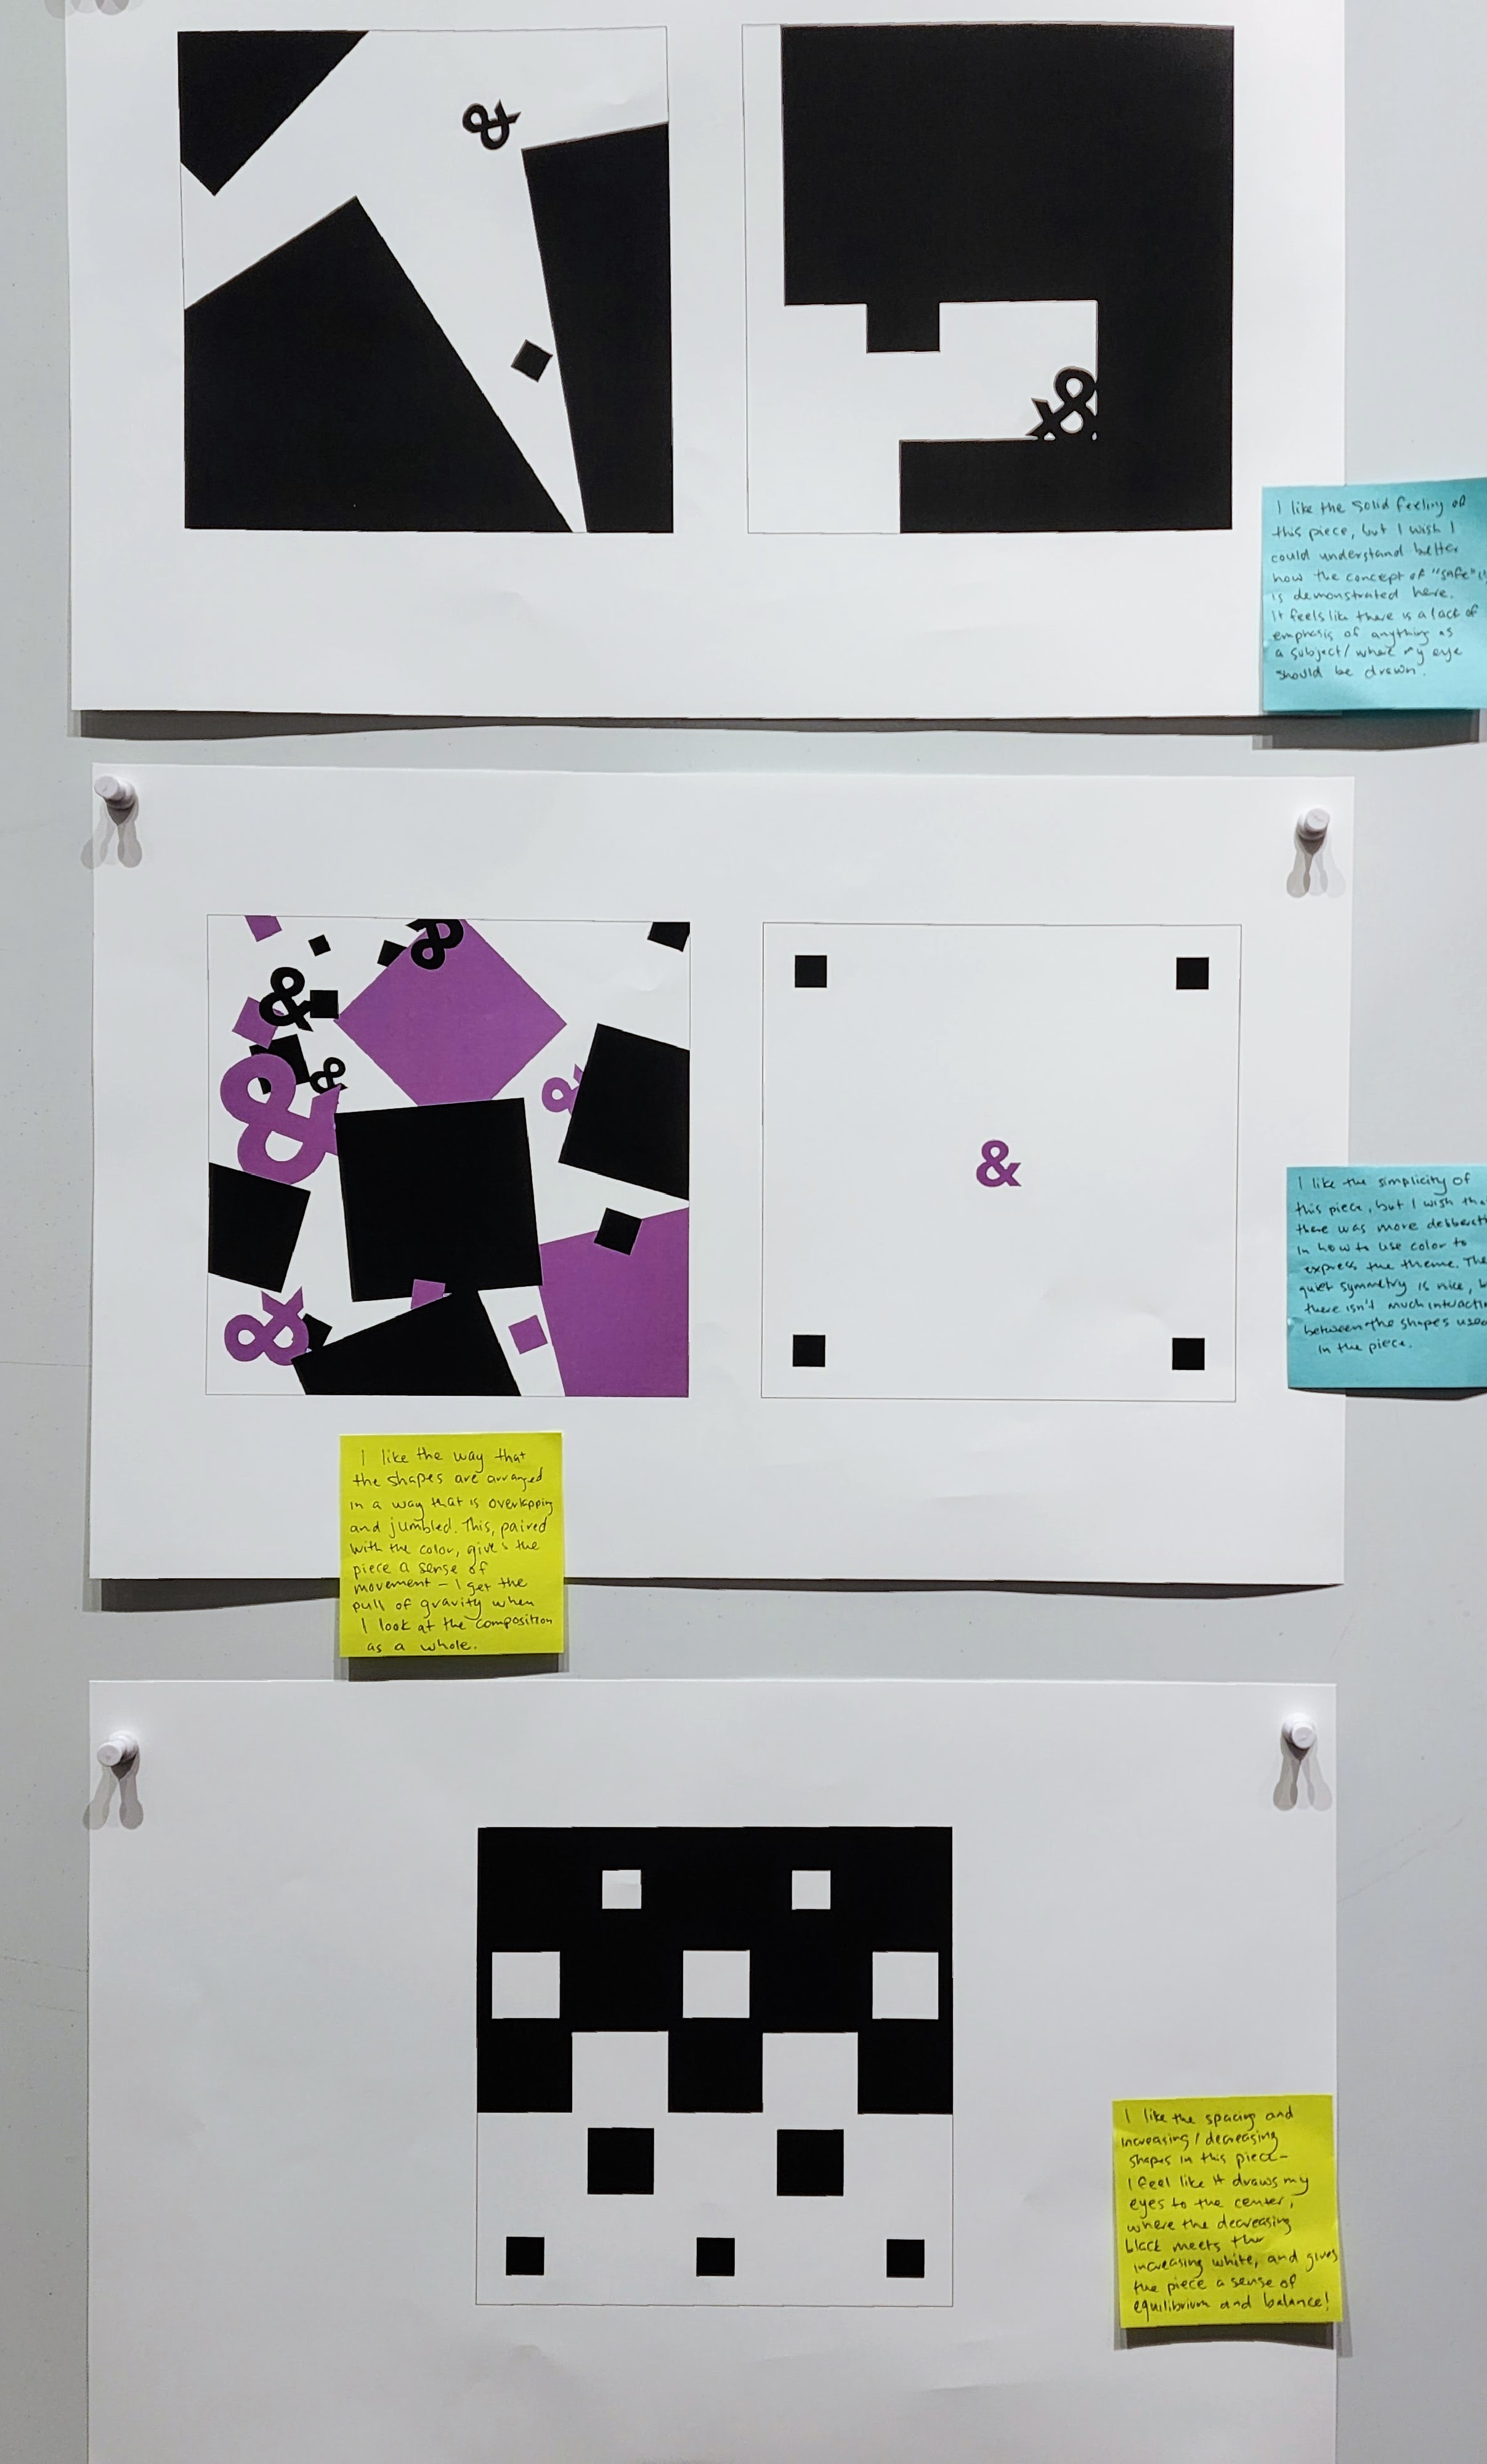 &
&
I like the solid feeling of
this piece, but I wish I
could understand better
how the concept of "safe"
is demonstrated here.
It feels like there is a lack of
emphasis of anything as
a subject/ where my eye
should be drawn.
&
&
&
&
&
&
&
I like the simplicity of
this piece, but I wish
there was more
in how to use color to
express the theme. The
quiet symmetry is nice,
there isn't much
between the shapes used
in the piece.
I like the way that
the shapes are arranged
in a way that is overlapping
and jumbled. This, paired
with the color, gives the
piece a sense of
movement – I get the
pull of gravity when
I look at the composition
as a whole.
I like the spacing and
increasing/decreasing
shapes in this piece–
I feel like it draws my
eyes to the center,
where the decreasing
black meets the
increasing white, and gives
the piece a sense of
equilibrium and balance!